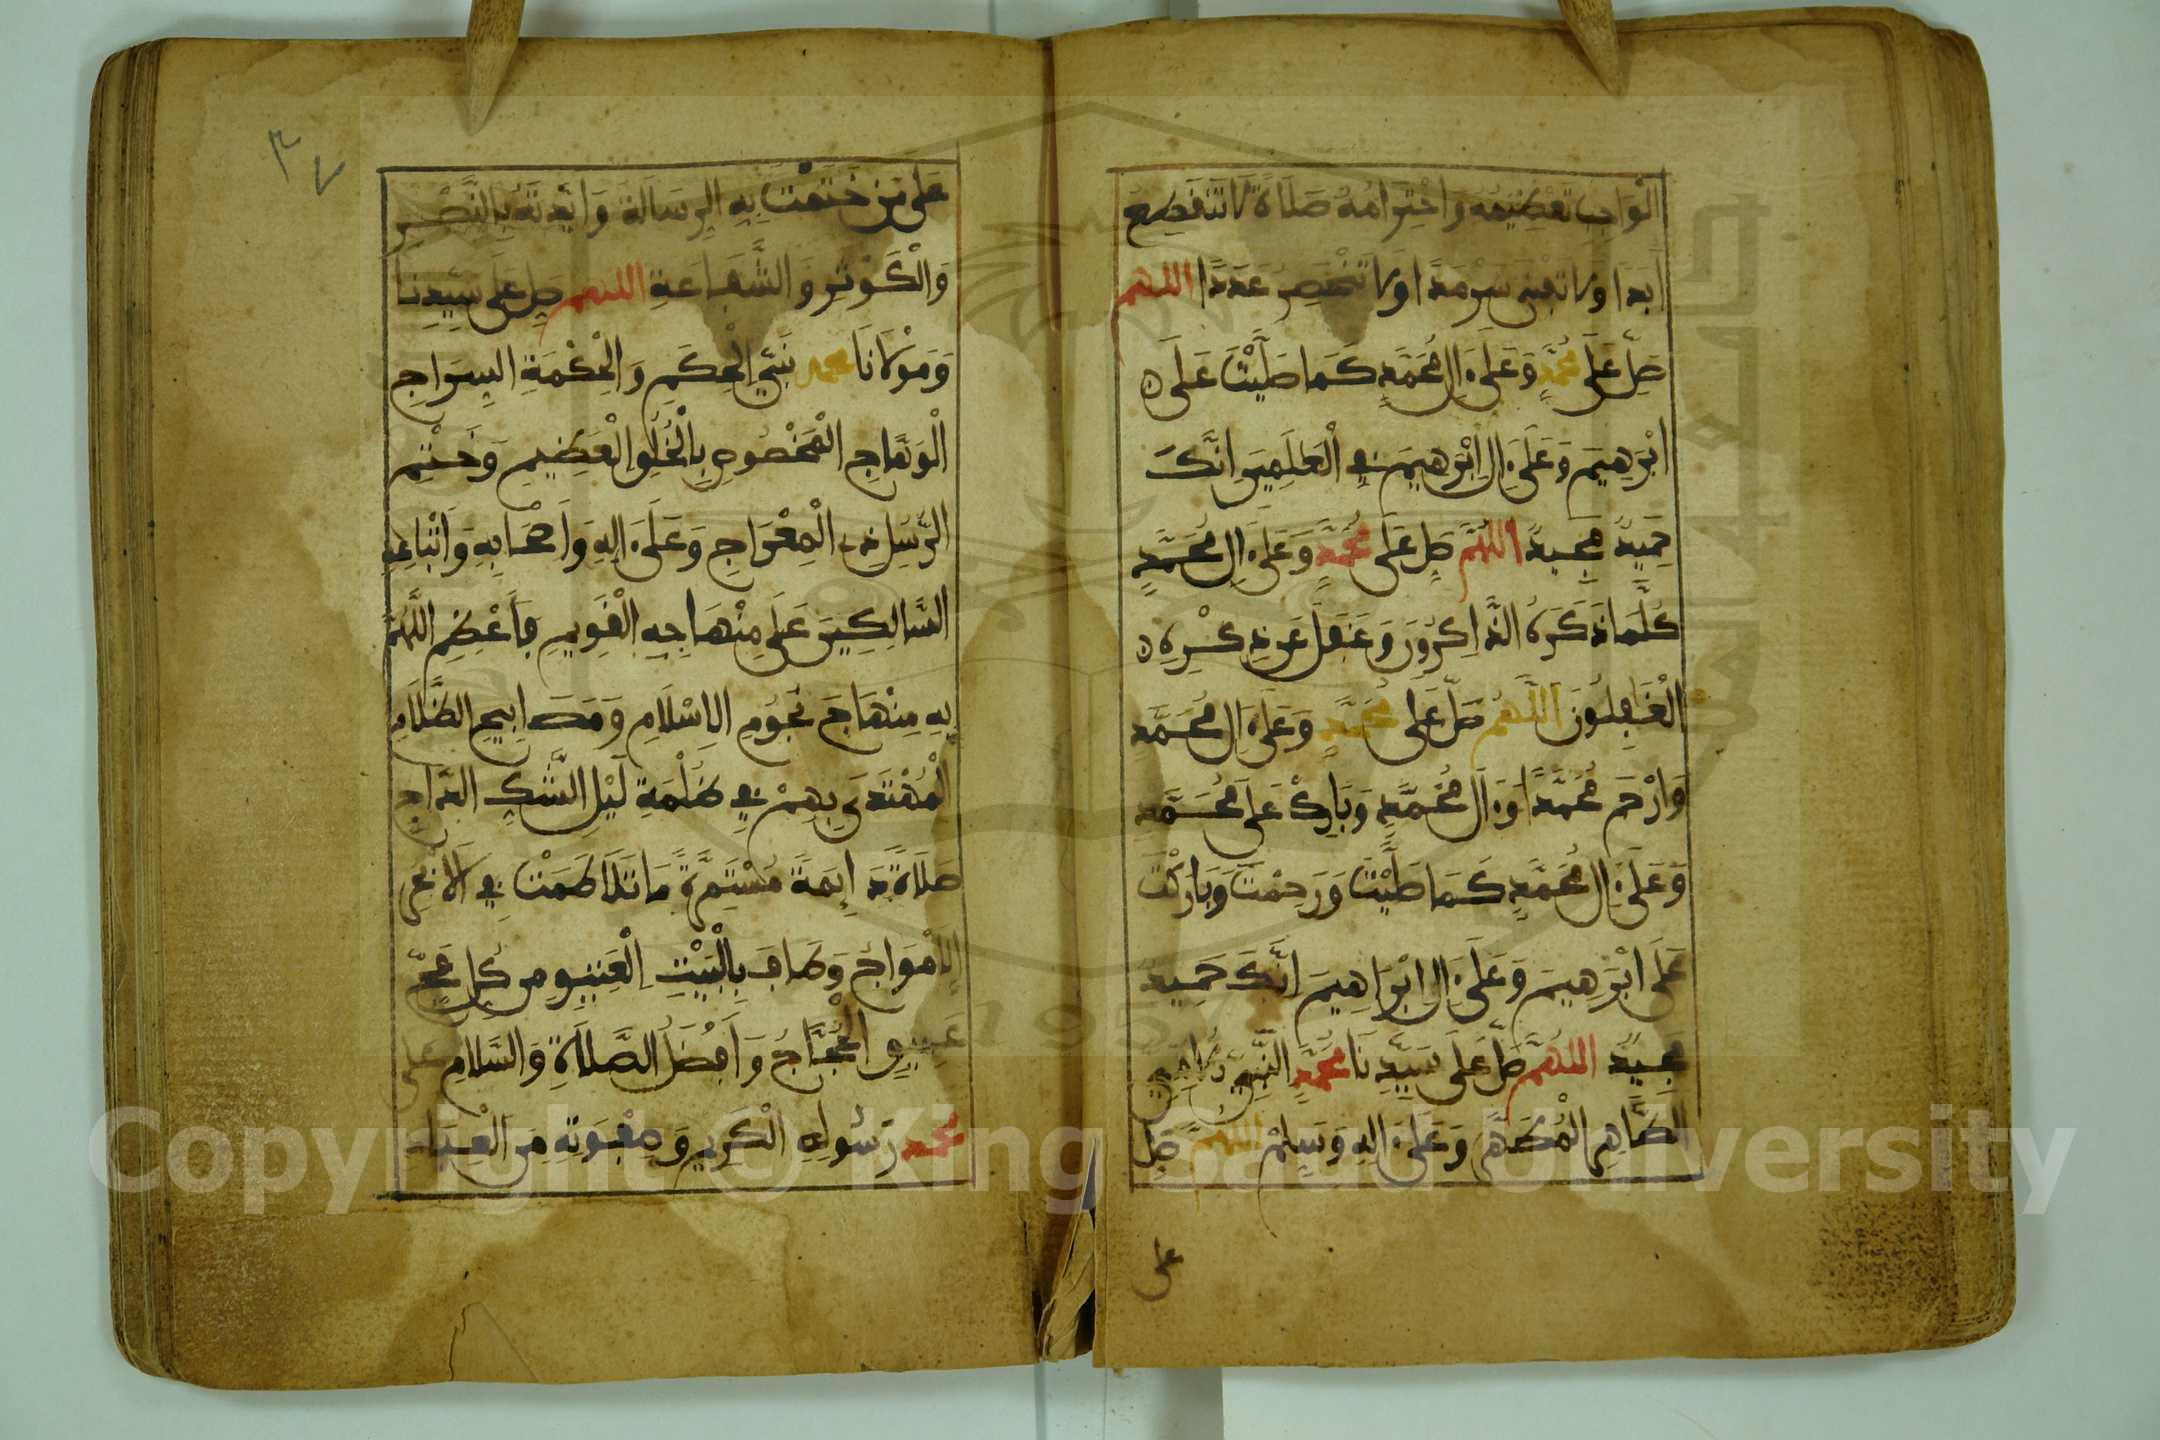 الْوَاجِبِ تَعْظِيمُهُ وَاحْتِرَامُهُ صَلَاةً لَا تَنْقَطِعُ
أَبَدًا وَلَا تَفْنَى سَرْمَدًا وَلَا تَنْحَصِرُ عَدَدًا اللهم
صَلِّ عَلَى مُحَمَّدٍ وَعَلَى ءَالِ مُحَمَّدٍ كَمَا صَلَّيْتَ عَلَى
ابْرَهِيمَ وَعَلَى ءَالِ ابْرَهِيمَ فِي الْعَلَمِينَ انَّكَ
حَمِيدٌ مَجِيدٌ اللَّهُمَّ صَلِّ عَلَى مُحَمَّدٍ وَعَلَى ءَالِ مُحَمَّدٍ
كُلَّمَا ذَكَرَهُ الذَّاكِرُونَ وَغَفَلَ عَن ذِكْرِهِ
الْغَافِلُونَ اللَّهُمَّ صَلِّ عَلَى مُحَمَّدٍ وَعَلَى ءَالِ مُحَمَّدٍ
وَارْحَمْ مُحَمَّدًا وَءَالَ مُحَمَّدٍ وَبَارِكْ عَلَى مُحَمَّدٍ
وَعَلَى ءَالِ مُحَمَّدٍ كَمَا صَلَّيْتَ وَرَحِمْتَ وَبَارَكْتَ
عَلَى ابْرَهِيمَ وَعَلَى ءَالِ ابْرَاهِيمَ انَّكَ حَمِيدٌ
مَجِيدٌ اللهُمَّ صَلِّ عَلَى سَيِّدِنَا مُحَمَّدٍ النَّبِيِّ الامِّيِّ
الطَّاهِرِ الْمُطَهَّرِ وَعَلَى ءَالِهِ وَسَلِّمْ اللهم صَلِّ
على
٣٧
عَلَى مَن خَتَمْتَ بِهِ الرِّسَالَةَ وَايَّدْتَهُ بِالنَّصْرِ
وَالْكَوْثَرِ وَالشَّفَاعَةِ اللهم صَلِّ عَلَى سَيِّدِنَا
وَمَوْلَانَا محمد نَبِيِّ الْحُكْمِ وَالْحِكْمَةِ السِّرَاجِ
الْوَهَّاجِ الْمَخْصُوصِ بِالْخُلُقِ الْعَظِيمِ وَخَتْمِ
الرُّسُلِ ذِي الْمِعْرَاجِ وَعَلَى ءَالِهِ وَأَصْحَابِهِ وَأَتْبَاعِهِ
السَّالِكِينَ عَلَى مِنْهَاجِهِ الْقَوِيمِ فَأَعْظِمِ اللَّهُمَّ
بِهِ مِنْهَاجَ نُجُومِ الاسْلَامِ وَمَصَابِيحِ الظَّلَامِ
الْمُهْتَدَى بِهِمْ فِي ظُلْمَةِ لَيْلِ الشَّكِّ الدَّاجِ
صَلَاةً دَائِمَةً مُسْتَمِرَّةً مَا تَلَاطَمَتْ فِي الابْحُرِ
الامْوَاجُ وَطَافَ بِالْبَيْتِ الْعَتِيقِ مِن كُلِّ فَجٍّ
عَمِيقٍ الْحُجَّاجُ وَأَفْضَلُ الصَّلَاةِ وَالسَّلَامِ على
محمد رَسُولِهِ الْكَرِيمِ وَصَفْوَتِهِ مِنَ الْعِبَادِ
Copyright © King Saud University
1957